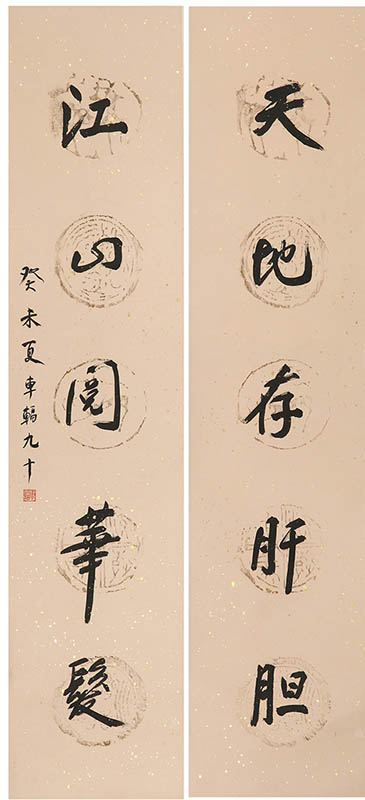 天地存肝胆
江山阅華髮
癸未夏車輻九十